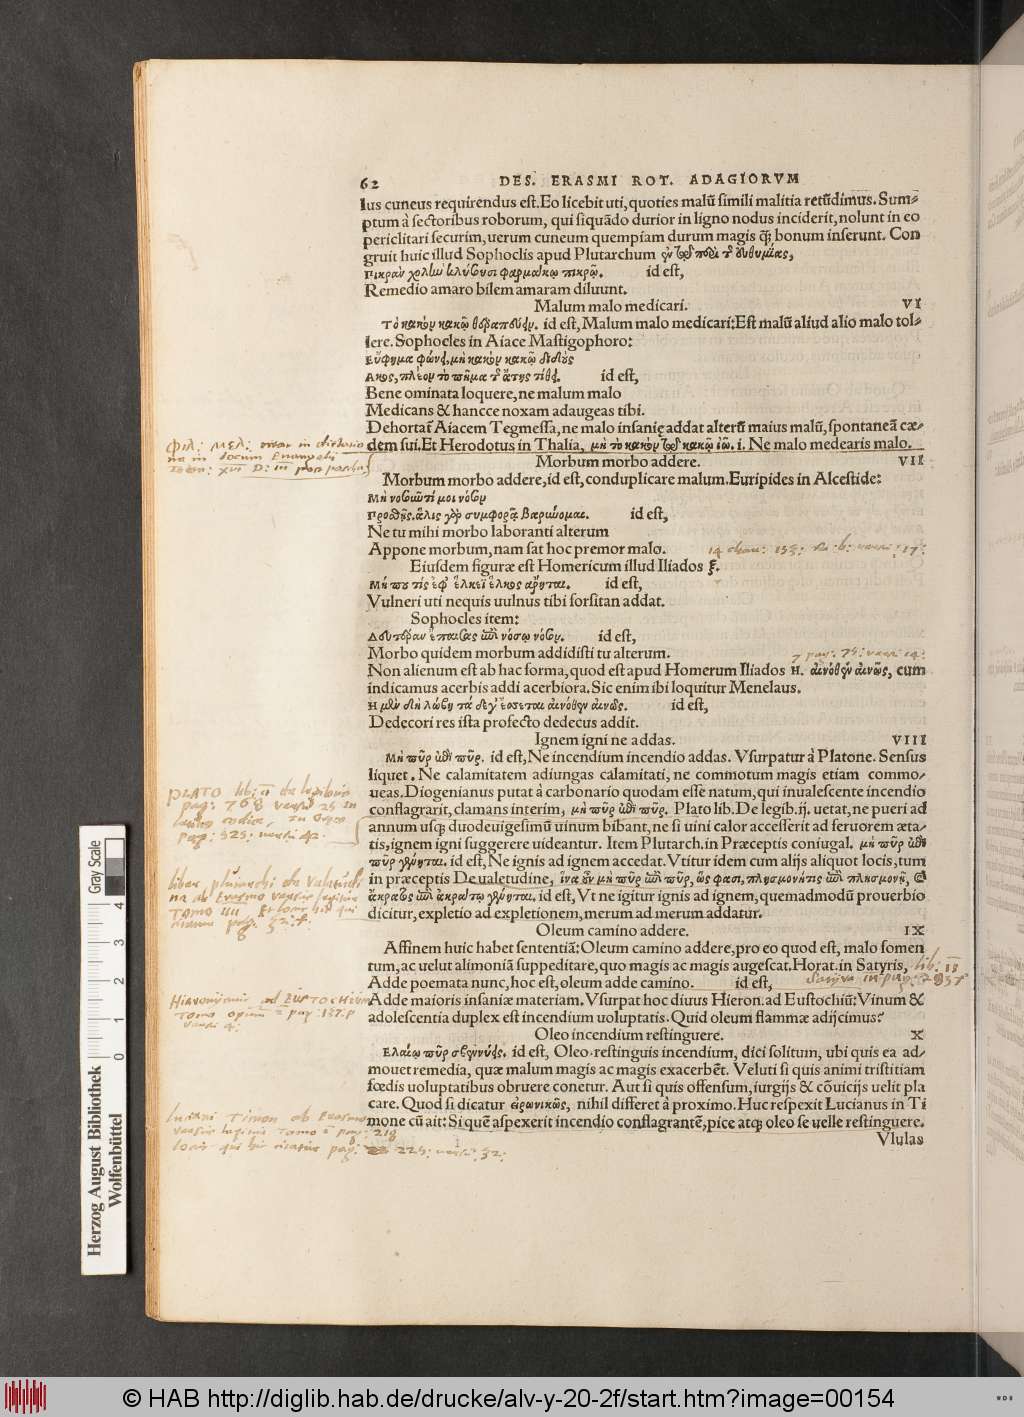 62 DES. ERASMI ROT. ADAGIORVM
lus cuneus requirendus est. Eo licebit uti, quoties malũ simili malitia retũdimus. Sum-
ptum à sectoribus roborum, qui siquãdo durior in ligno nodus inciderit, nolunt in eo
periclitari securim, uerum cuneum quempiam durum magis q̃; bonum inserunt. Con
gruit huic illud Sophoclis apud Plutarchum ἐν τῷ περὶ τ̃ εὐθυμίας,
Πικρὰν χολὴν κλύζουσι φαρμάκῳ πικρῷ. id est,
Remedio amaro bilem amaram diluunt.
Malum malo medicari. VI
Τὸ κακὸν κακῷ θεραπεύειν. id est, Malum malo medicari: Est malũ aliud alio malo tol-
lere. Sophocles in Aiace Mastigophoro:
Εὔφημα φώνει, μὴ κακὸν κακῷ διδοὺς
Ἄκος, πλέον τὸ πῆμα τ̃ ἄτης τίθει. id est,
Bene ominata loquere, ne malum malo
Medicans & hancce noxam adaugeas tibi.
Dehortat̃ Aiacem Tegmessa, ne malo insanię addat alterũ maius malũ, spontaneã cæ-
dem sui. Et Herodotus in Thalia, μὴ τὸ κακὸν τῷ κακῷ ἰῶ. i. Ne malo medearis malo.
Morbum morbo addere. VII
Morbum morbo addere, id est, conduplicare malum. Euripides in Alcestide:
Μὴ νοσοῦντί μοι νόσον
Προσθῇς. ἅλις γὰρ συμφορᾷ βαρύνομαι. id est,
Ne tu mihi morbo laboranti alterum
Appone morbum, nam sat hoc premor malo.
Eiusdem figuræ est Homericum illud Iliados ξ.
Μή πού τις ἐφ' ἕλκεϊ ἕλκος ἄρηται. id est,
Vulneri uti nequis uulnus tibi forsitan addat.
Sophocles item:
Δευτέραν ἔπαισας ἐπὶ νόσῳ νόσον. id est,
Morbo quidem morbum addidisti tu alterum.
Non alienum est ab hac forma, quod est apud Homerum Iliados Η. αἰνόθεν αἰνῶς, cum
indicamus acerbis addi acerbiora. Sic enim ibi loquitur Menelaus.
Η μὲν δὴ λώβη τά δε γ' ἔσσεται αἰνόθεν αἰνῶς. id est,
Dedecori res ista profecto dedecus addit.
Ignem igni ne addas. VIII
Μὴ πῦρ ἐπὶ πῦρ. id est, Ne incendium incendio addas. Vsurpatur à Platone. Sensus
liquet. Ne calamitatem adiungas calamitati, ne commotum magis etiam commo-
ueas. Diogenianus putat à carbonario quodam esse natum, qui inualescente incendio
conflagrarit, clamans interim, μὴ πῦρ ἐπὶ πῦρ. Plato lib. De legib. ij. uetat, ne pueri ad
annum usq; duodeuigesimũ uinum bibant, ne si uini calor accesserit ad feruorem æta-
tis, ignem igni suggerere uideantur. Item Plutarch. in Præceptis coniugal. μὴ πῦρ ἐπὶ
πῦρ γένηται. id est, Ne ignis ad ignem accedat. Vtitur idem cum alijs aliquot locis, tum
in præceptis De ualetudine, ἵνα οὖν μὴ πῦρ ἐπὶ πῦρ, ὥς φασι, πλησμονή τις ἐπὶ πλησμονῇ, &
ἄκρατος ἐπὶ ἀκράτῳ γένηται. id est, Vt ne igitur ignis ad ignem, quemadmodũ prouerbio
dicitur, expletio ad expletionem, merum ad merum addatur.
Oleum camino addere. IX
Affinem huic habet sententiã: Oleum camino addere, pro eo quod est, malo fomen
tum, ac uelut alimoniã suppeditare, quo magis ac magis augescat. Horat. in Satyris,
Adde poemata nunc, hoc est, oleum adde camino. id est,
Adde maioris insaniæ materiam. Vsurpat hoc diuus Hieron. ad Eustochiũ: Vinum &
adolescentia duplex est incendium uoluptatis. Quid oleum flammæ adijcimus?
Oleo incendium restinguere. X
Ελαίῳ πῦρ σβεννύεις. id est, Oleo restinguis incendium, dici solitum, ubi quis ea ad-
mouet remedia, quæ malum magis ac magis exacerbẽt. Veluti si quis animi tristitiam
fœdis uoluptatibus obruere conetur. Aut si quis offensum, iurgijs & cõuicijs uelit pla
care. Quod si dicatur εἰρωνικῶς, nihil differet à proximo. Huc respexit Lucianus in Ti
mone cũ ait: Si quẽ aspexerit incendio conflagrantẽ, pice atq; oleo se uelle restinguere.
Vlulas
PLATO lib: II de legibus
pag: 768
liber plutarchi de
TOMO IIII
Hieronymus ad EUSTOCHIUM
Luciani Timon ab Erasmo
Herzog August Bibliothek
Wolfenbüttel
Gray Scale
0 1 2 3 4
© HAB http://diglib.hab.de/drucke/alv-y-20-2f/start.htm?image=00154